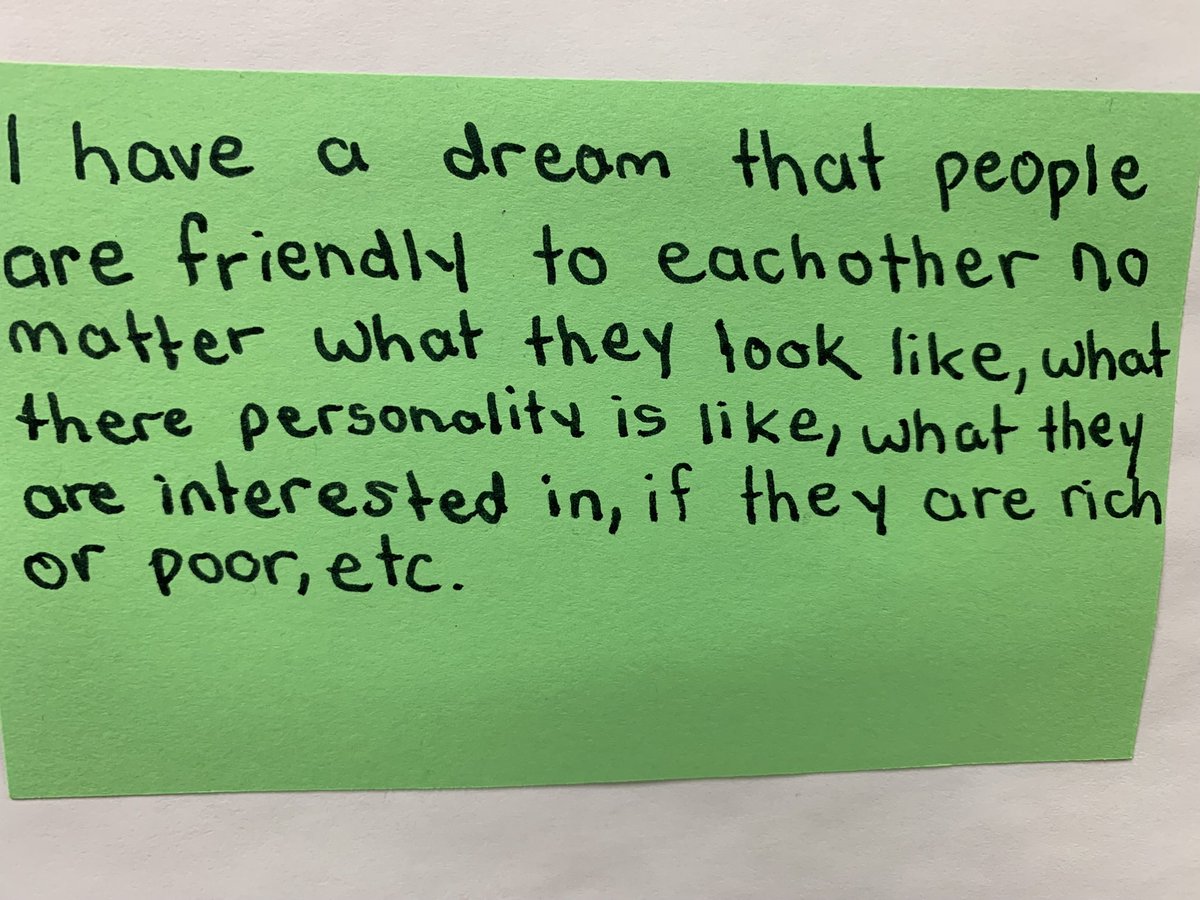 I have a dream that people
are friendly to eachother no
matter what they look like, what
there personality is like, what they
are interested in, if they are rich
or poor, etc.